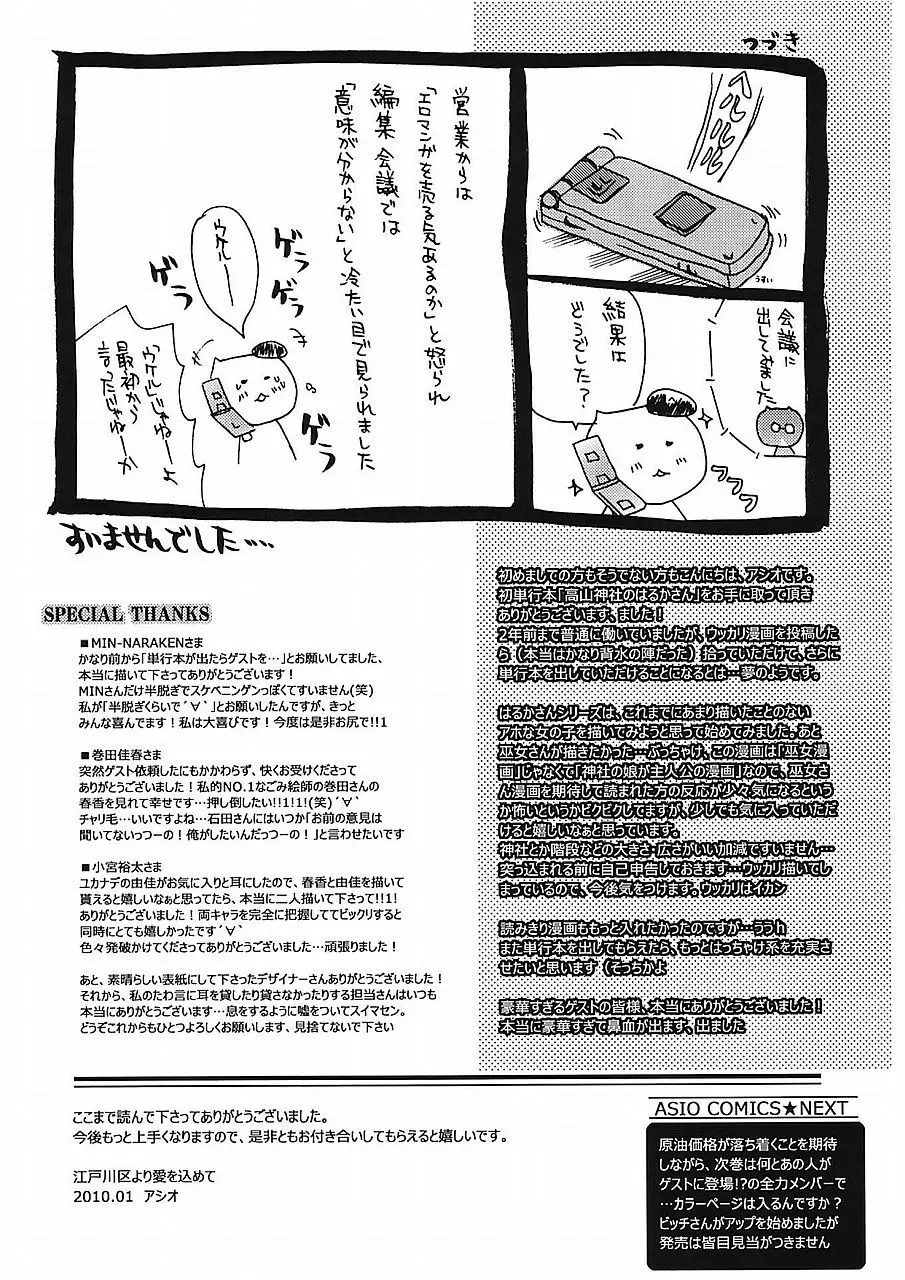 つづき
ヘルルル
うすい
会議に
出してみました
結果は
どうでした?
ワクワク
営業からは
「エロマンガを売る気あるのか」と怒られ
編集会議では
「意味が分からない」と冷たい目で見られました
ウケルー
ゲラ
ゲラ
ゲラ
ゲラ
「ウケル」じゃねーよ
最初から
言ったじゃねーか
すいませんでした…
初めましての方もそうでない方もこんにちは、アシオです。
初単行本「高山神社のはるかさん」をお手に取って頂き
ありがとうございます、ました!
2年前まで普通に働いていましたが、ウッカリ漫画を投稿した
ら(本当はかなり背水の陣だった)拾っていただけて、さらに
単行本を出していただけることになるとは…夢のようです。
はるかさんシリーズは、これまでにあまり描いたことのない
アホな女の子を描いてみようと思って始めてみました。あと
巫女さんが描きたかった…ぶっちゃけ、この漫画は「巫女漫
画」じゃなくて「神社の娘が主人公の漫画」なので、巫女さ
ん漫画を期待して読まれた方の反応が少々気になるという
か怖いというかビクビクしてますが、少しでも気に入っていただ
けると嬉しいなぁと思っています。
神社とか階段などの大きさ・広さがいい加減ですいません…
突っ込まれる前に自己申告しておきます…ウッカリ描いてし
まっているので、今後気をつけます。ウッカリはイカン
読みきり漫画ももっと入れたかったのですが…ううh
また単行本を出してもらえたら、もっとはっちゃけ系を充実さ
せたいと思います(そっちかよ
豪華すぎるゲストの皆様、本当にありがとうございました!
本当に豪華すぎて鼻血が出ます、出ました
SPECIAL THANKS
■MIN-NARAKENさま
かなり前から「単行本が出たらゲストを…」とお願いしてました、
本当に描いて下さってありがとうございます!
MINさんだけ半脱ぎでスケベニンゲンっぽくてすいません(笑)
私が「半脱ぎくらいで´∀`」とお願いしたんですが、きっと
みんな喜んでます!私は大喜びです!今度は是非お尻で!!1
■巻田佳春さま
突然ゲスト依頼したにもかかわらず、快くお受けくださって
ありがとうございました!私的NO.1なごみ絵師の巻田さんの
春香を見れて幸せです…押し倒したい!!1!1!(笑)´∀`
チャリ毛…いいですよね…石田さんにはいつか「お前の意見は
聞いてないっつーの!俺がしたいんだっつーの!」と言わせたいです
■小宮裕太さま
ユカナデの由佳がお気に入りと耳にしたので、春香と由佳を描いて
貰えると嬉しいなぁと思ってたら、本当に二人描いて下さって!!1!
ありがとうございました!両キャラを完全に把握しててビックリすると
同時にとても嬉しかったです´∀`
色々発破かけてくださってありがとうございました…頑張りました!
あと、素晴らしい表紙にして下さったデザイナーさんありがとうございました!
それから、私のたわ言に耳を貸したり貸さなかったりする担当さんはいつも
本当にありがとうございます…息をするように嘘をついてスイマセン。
どうぞこれからもひとつよろしくお願いします、見捨てないで下さい
ここまで読んで下さってありがとうございました。
今後もっと上手くなりますので、是非ともお付き合いしてもらえると嬉しいです。
江戸川区より愛を込めて
2010.01 アシオ
ASIO COMICS★NEXT
原油価格が落ち着くことを期待
しながら、次巻は何とあの人が
ゲストに登場!?の全力メンバーで
…カラーページは入るんですか?
ビッチさんがアップを始めましたが
発売は皆目見当がつきません